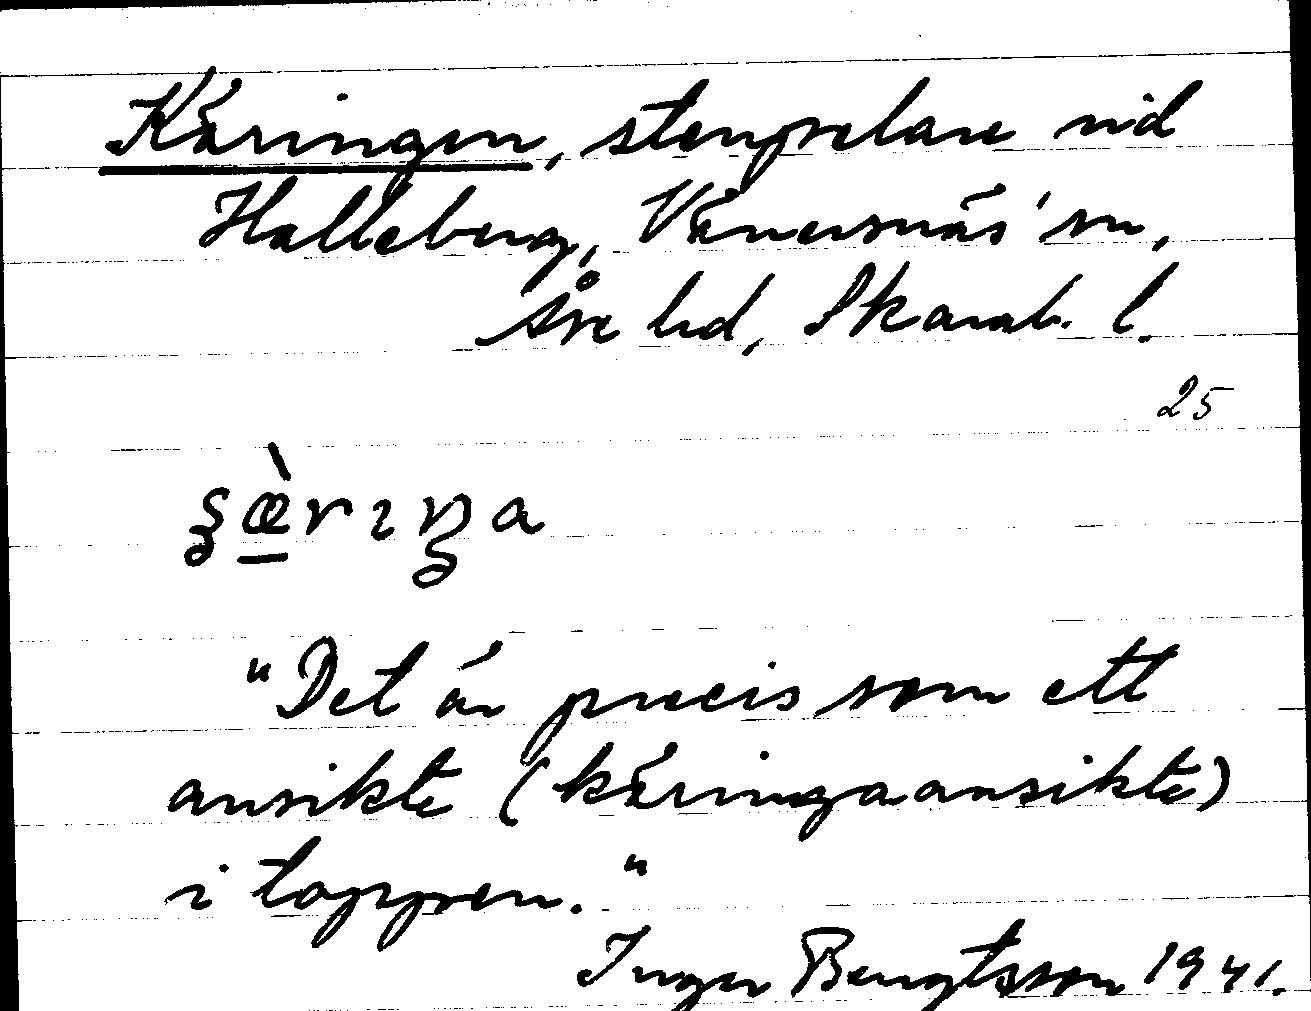 Käringen, stenpelare vid
Halleberg, Vänersnäs' sn,
Åse hd, Skarab. l.
25
"Det är precis som ett
ansikte (käringaansikte)
i toppen."
Inger Bengtsson 1941.